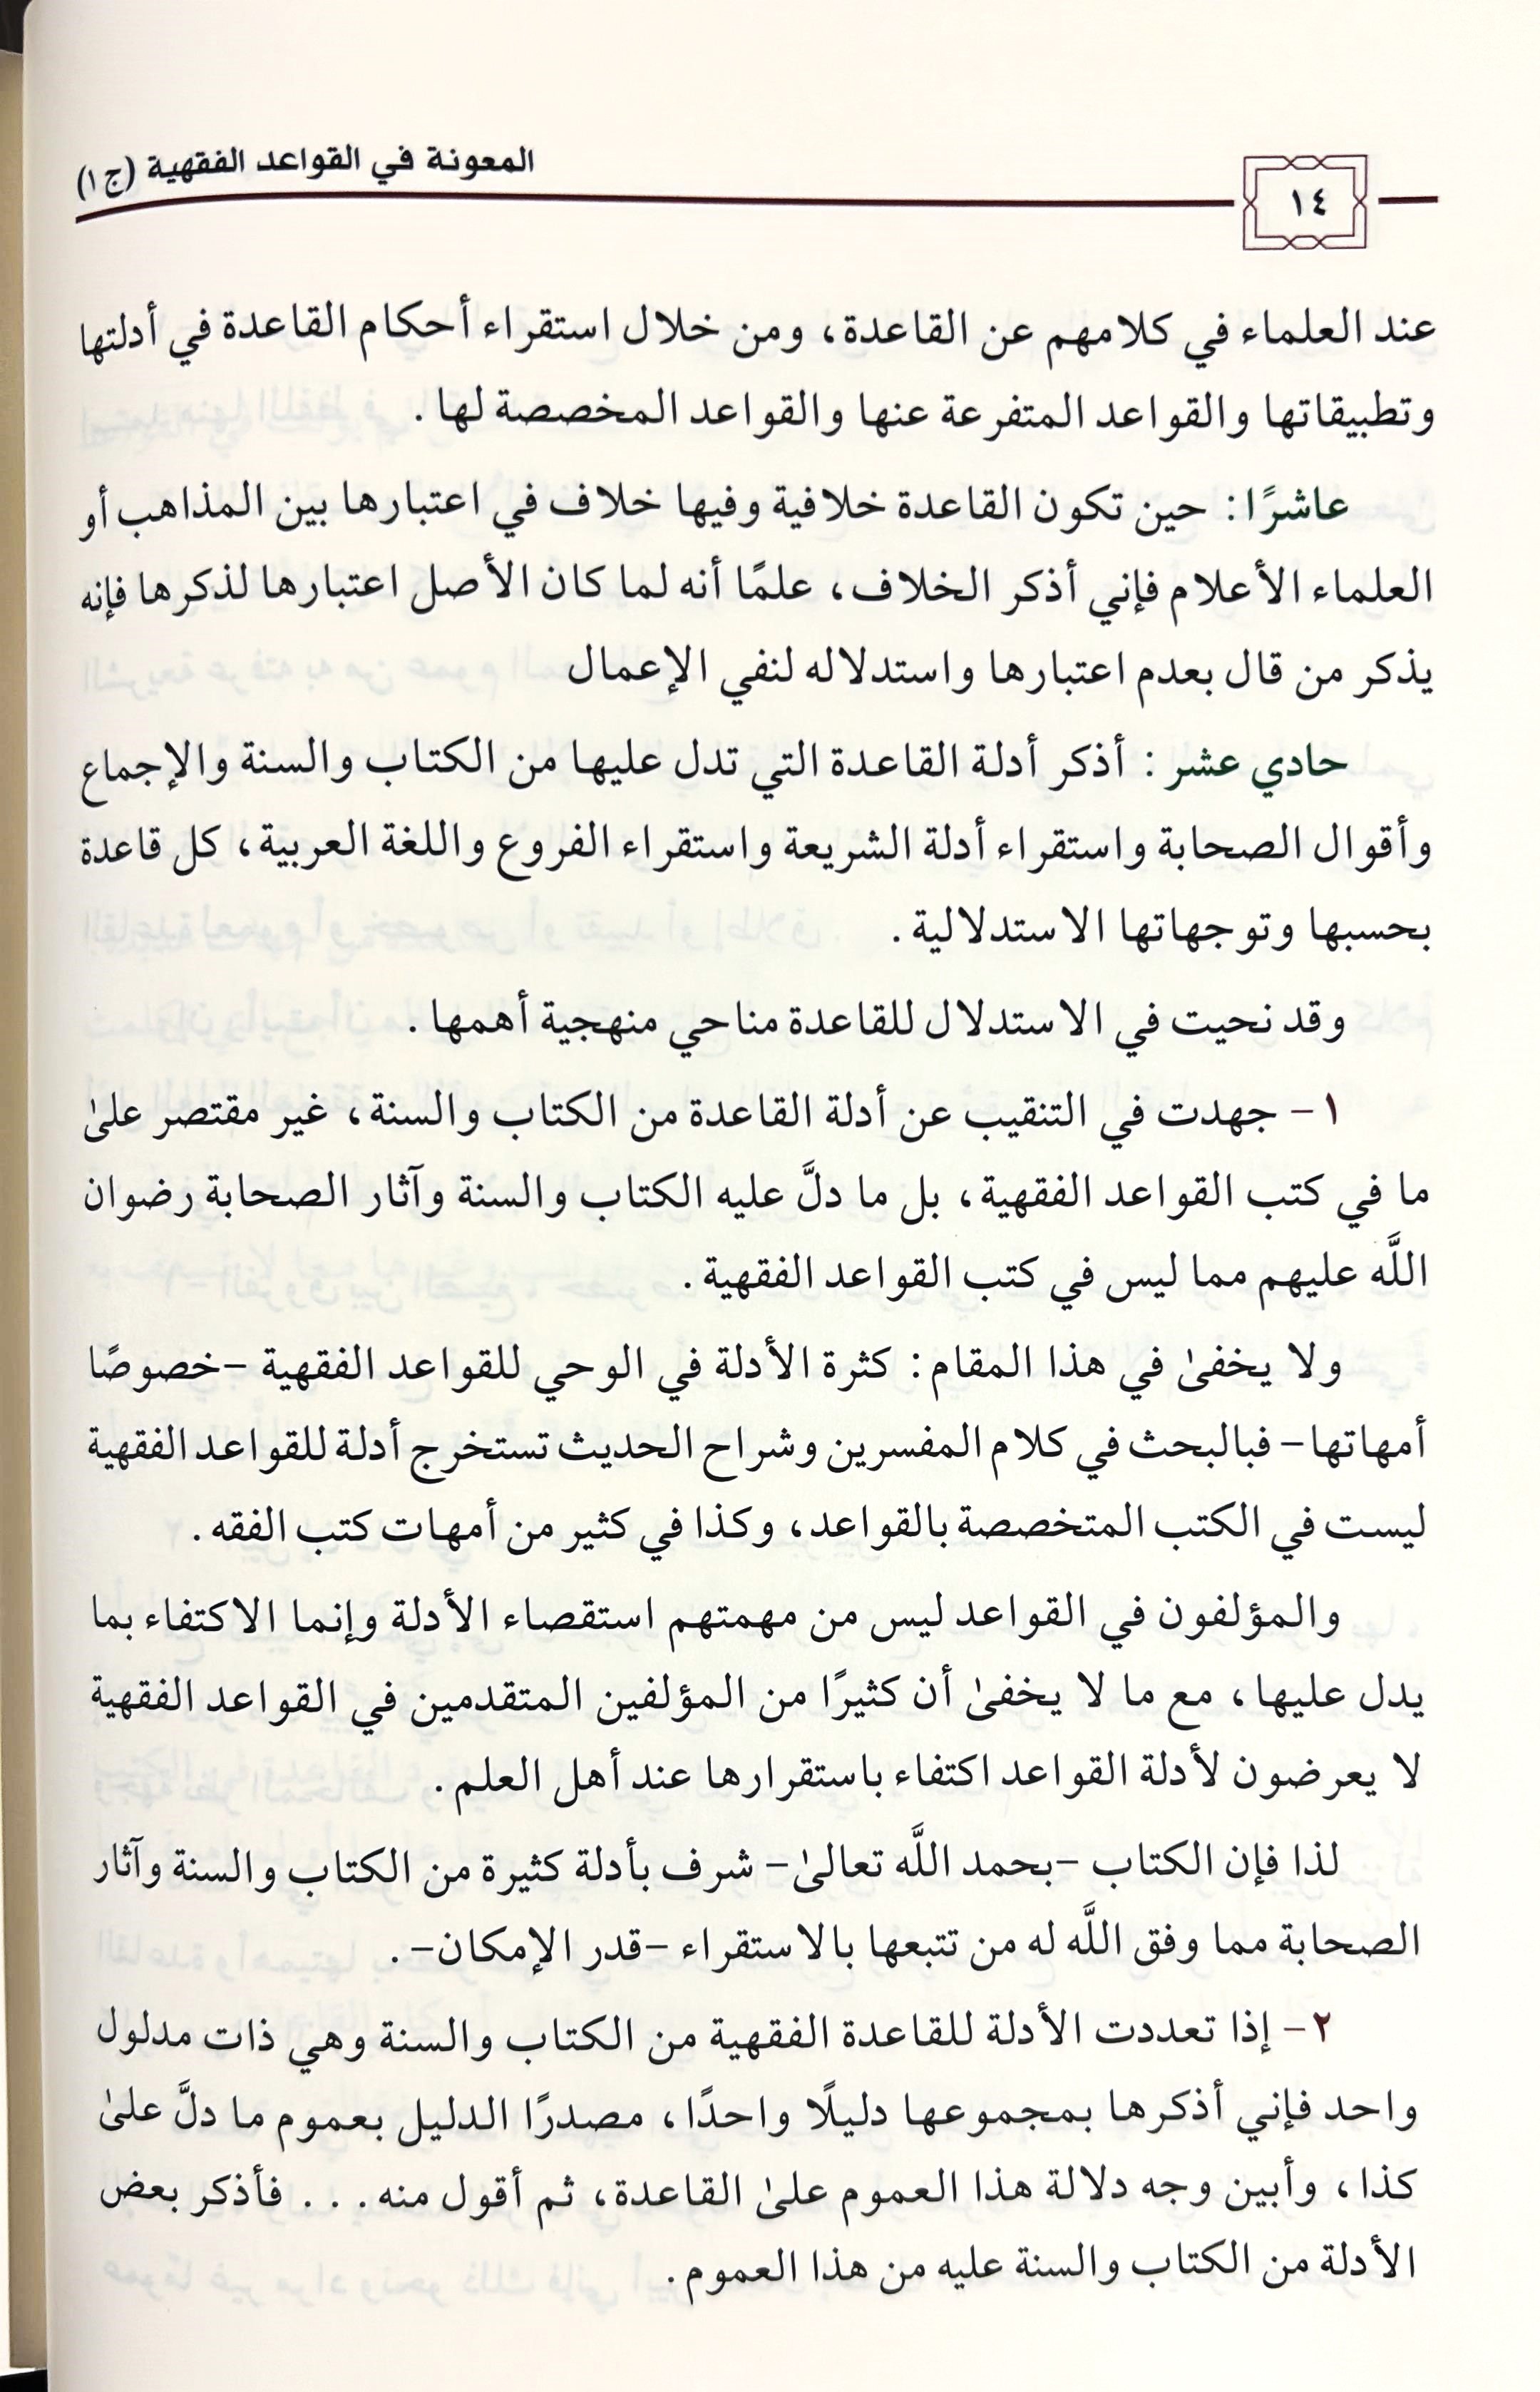 المعونة في القواعد الفقهية (ج١)
١٤
عند العلماء في كلامهم عن القاعدة، ومن خلال استقراء أحكام القاعدة في أدلتها
وتطبيقاتها والقواعد المتفرعة عنها والقواعد المخصصة لها .
عاشرًا: حين تكون القاعدة خلافية وفيها خلاف في اعتبارها بين المذاهب أو
العلماء الأعلام فإني أذكر الخلاف، علمًا أنه لما كان الأصل اعتبارها لذكرها فإنه
يذكر من قال بعدم اعتبارها واستدلاله لنفي الإعمال
حادي عشر : أذكر أدلة القاعدة التي تدل عليها من الكتاب والسنة والإجماع
وأقوال الصحابة واستقراء أدلة الشريعة واستقراء الفروع واللغة العربية، كل قاعدة
بحسبها وتوجهاتها الاستدلالية .
وقد نحيت في الاستدلال للقاعدة مناحي منهجية أهمها .
١- جهدت في التنقيب عن أدلة القاعدة من الكتاب والسنة، غير مقتصر علىٰ
ما في كتب القواعد الفقهية، بل ما دلَّ عليه الكتاب والسنة وآثار الصحابة رضوان
اللَّه عليهم مما ليس في كتب القواعد الفقهية .
ولا يخفىٰ في هذا المقام: كثرة الأدلة في الوحي للقواعد الفقهية -خصوصًا
أمهاتها- فبالبحث في كلام المفسرين وشراح الحديث تستخرج أدلة للقواعد الفقهية
ليست في الكتب المتخصصة بالقواعد، وكذا في كثير من أمهات كتب الفقه .
والمؤلفون في القواعد ليس من مهمتهم استقصاء الأدلة وإنما الاكتفاء بما
يدل عليها، مع ما لا يخفىٰ أن كثيرًا من المؤلفين المتقدمين في القواعد الفقهية
لا يعرضون لأدلة القواعد اكتفاء باستقرارها عند أهل العلم .
لذا فإن الكتاب -بحمد اللَّه تعالىٰ- شرف بأدلة كثيرة من الكتاب والسنة وآثار
الصحابة مما وفق اللَّه له من تتبعها بالاستقراء -قدر الإمكان- .
٢- إذا تعددت الأدلة للقاعدة الفقهية من الكتاب والسنة وهي ذات مدلول
واحد فإني أذكرها بمجموعها دليلًا واحدًا، مصدرًا الدليل بعموم ما دلَّ علىٰ
كذا، وأبين وجه دلالة هذا العموم علىٰ القاعدة، ثم أقول منه . . . فأذكر بعض
الأدلة من الكتاب والسنة عليه من هذا العموم .